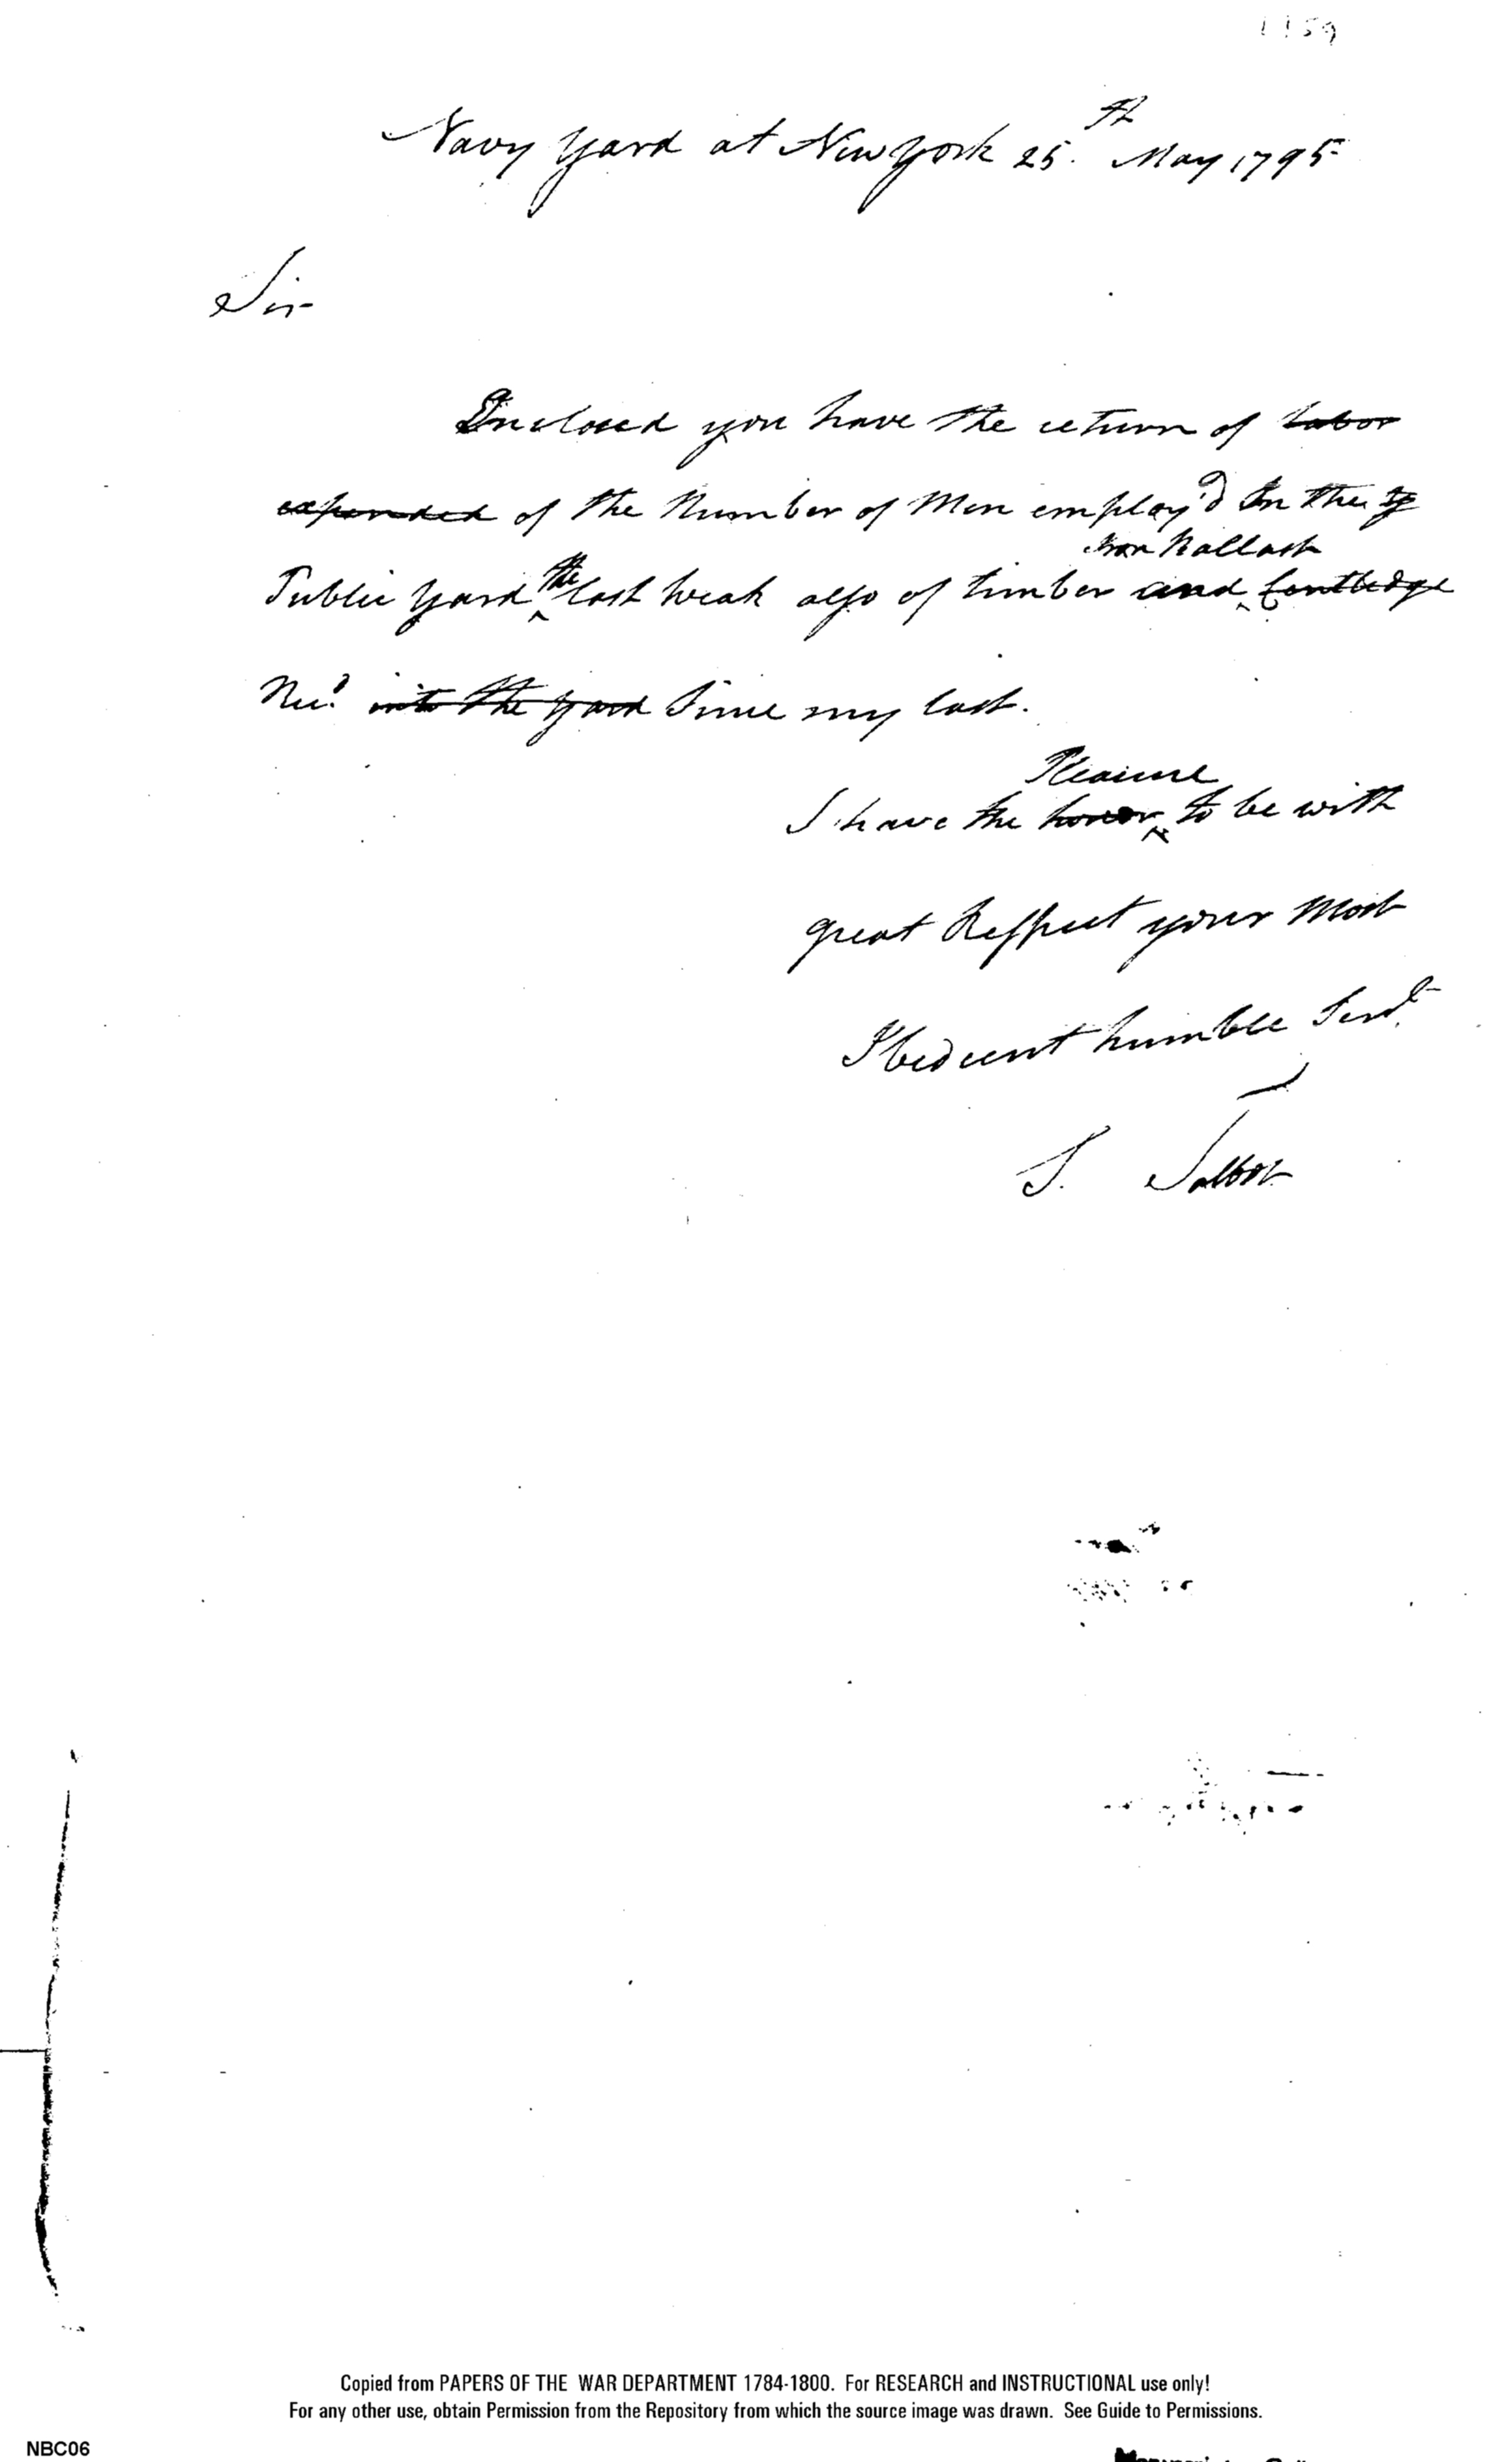 1159
Navy Yard at New York 25.th May 1795
Sir
Inclosed you have the return of labor
expended of the Number of Men employ'd In the
Iron Ballast
Public Yard the last weak also of timber and Centledge
Recd. into the yard Since my last.
Pleasure
I have the honor to be with
great Respect your Most
Obedient humble Servt.
S. Talbot
Copied from PAPERS OF THE WAR DEPARTMENT 1784-1800. For RESEARCH and INSTRUCTIONAL use only!
For any other use, obtain Permission from the Repository from which the source image was drawn. See Guide to Permissions.
NBC06